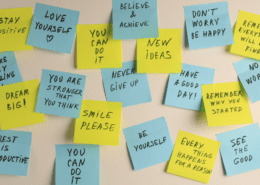 STAY
POSITIVE
LOVE
YOURSELF
BELIEVE
&
ACHIEVE
DON'T
WORRY
BE HAPPY
YOU
CAN
DO
IT
NEW
IDEAS
DREAM
BIG!
YOU ARE
STRONGER
THAT
YOU THINK
NEVER
GIVE UP
HAVE
A GOOD
DAY!
REMEMBER
WHY YOU
STARTED
SMILE
PLEASE
BE
YOURSELF
EVERY
THING
HAPPENS
FOR A REASON
SEE
THE
GOOD
YOU
CAN
DO
IT